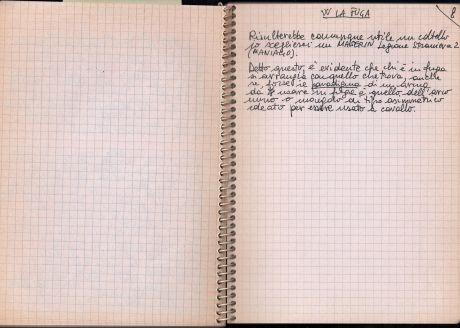 W LA FUGA
8
Risulterebbe comunque utile un coltello
io sceglierei un MASERIN Legione Straniera 2
(MANIAGO).
Detto questo, è evidente che chi è in fuga
si arrangia con quello che trova, anche
se forse il paradigma di un'arma
da usare in fuga è quello dell'arco
unno o mongolo di tipo asimmetrico
ideato per essere usato a cavallo.